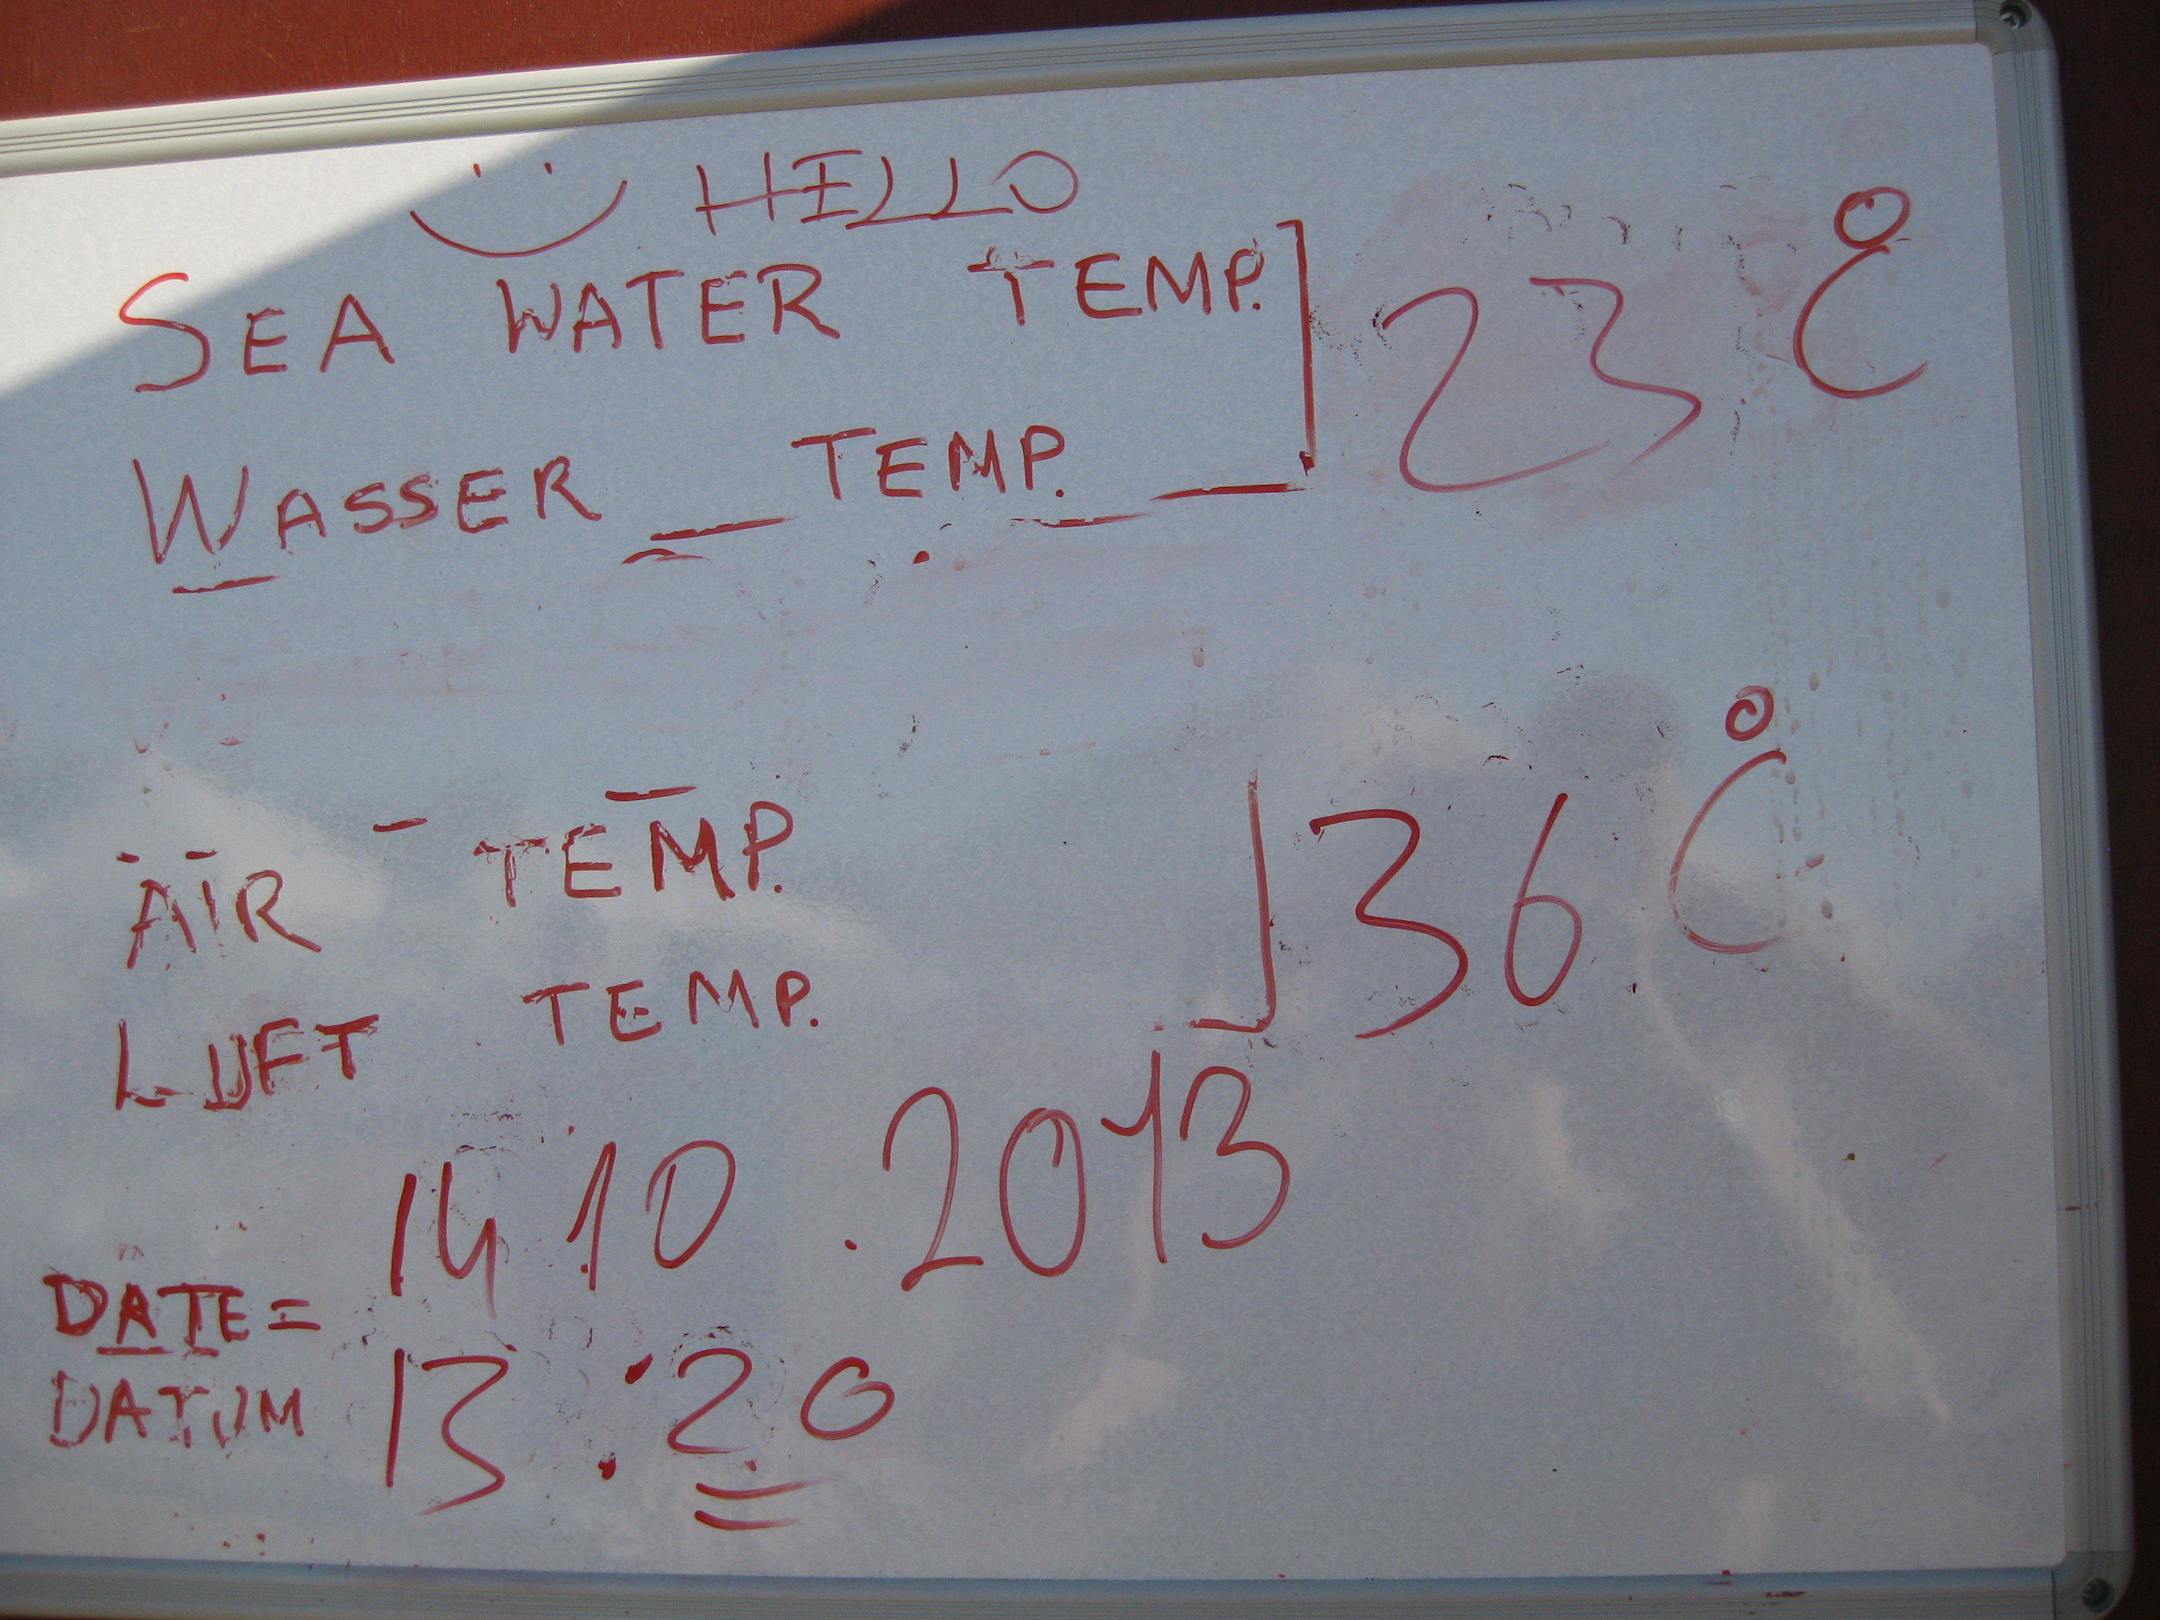 HELLO
SEA WATER TEMP. 23 °C
WASSER TEMP.
AIR - TEMP. 36 °C
LUFT TEMP.
14.10.2013
DATE=
DATUM 13:20